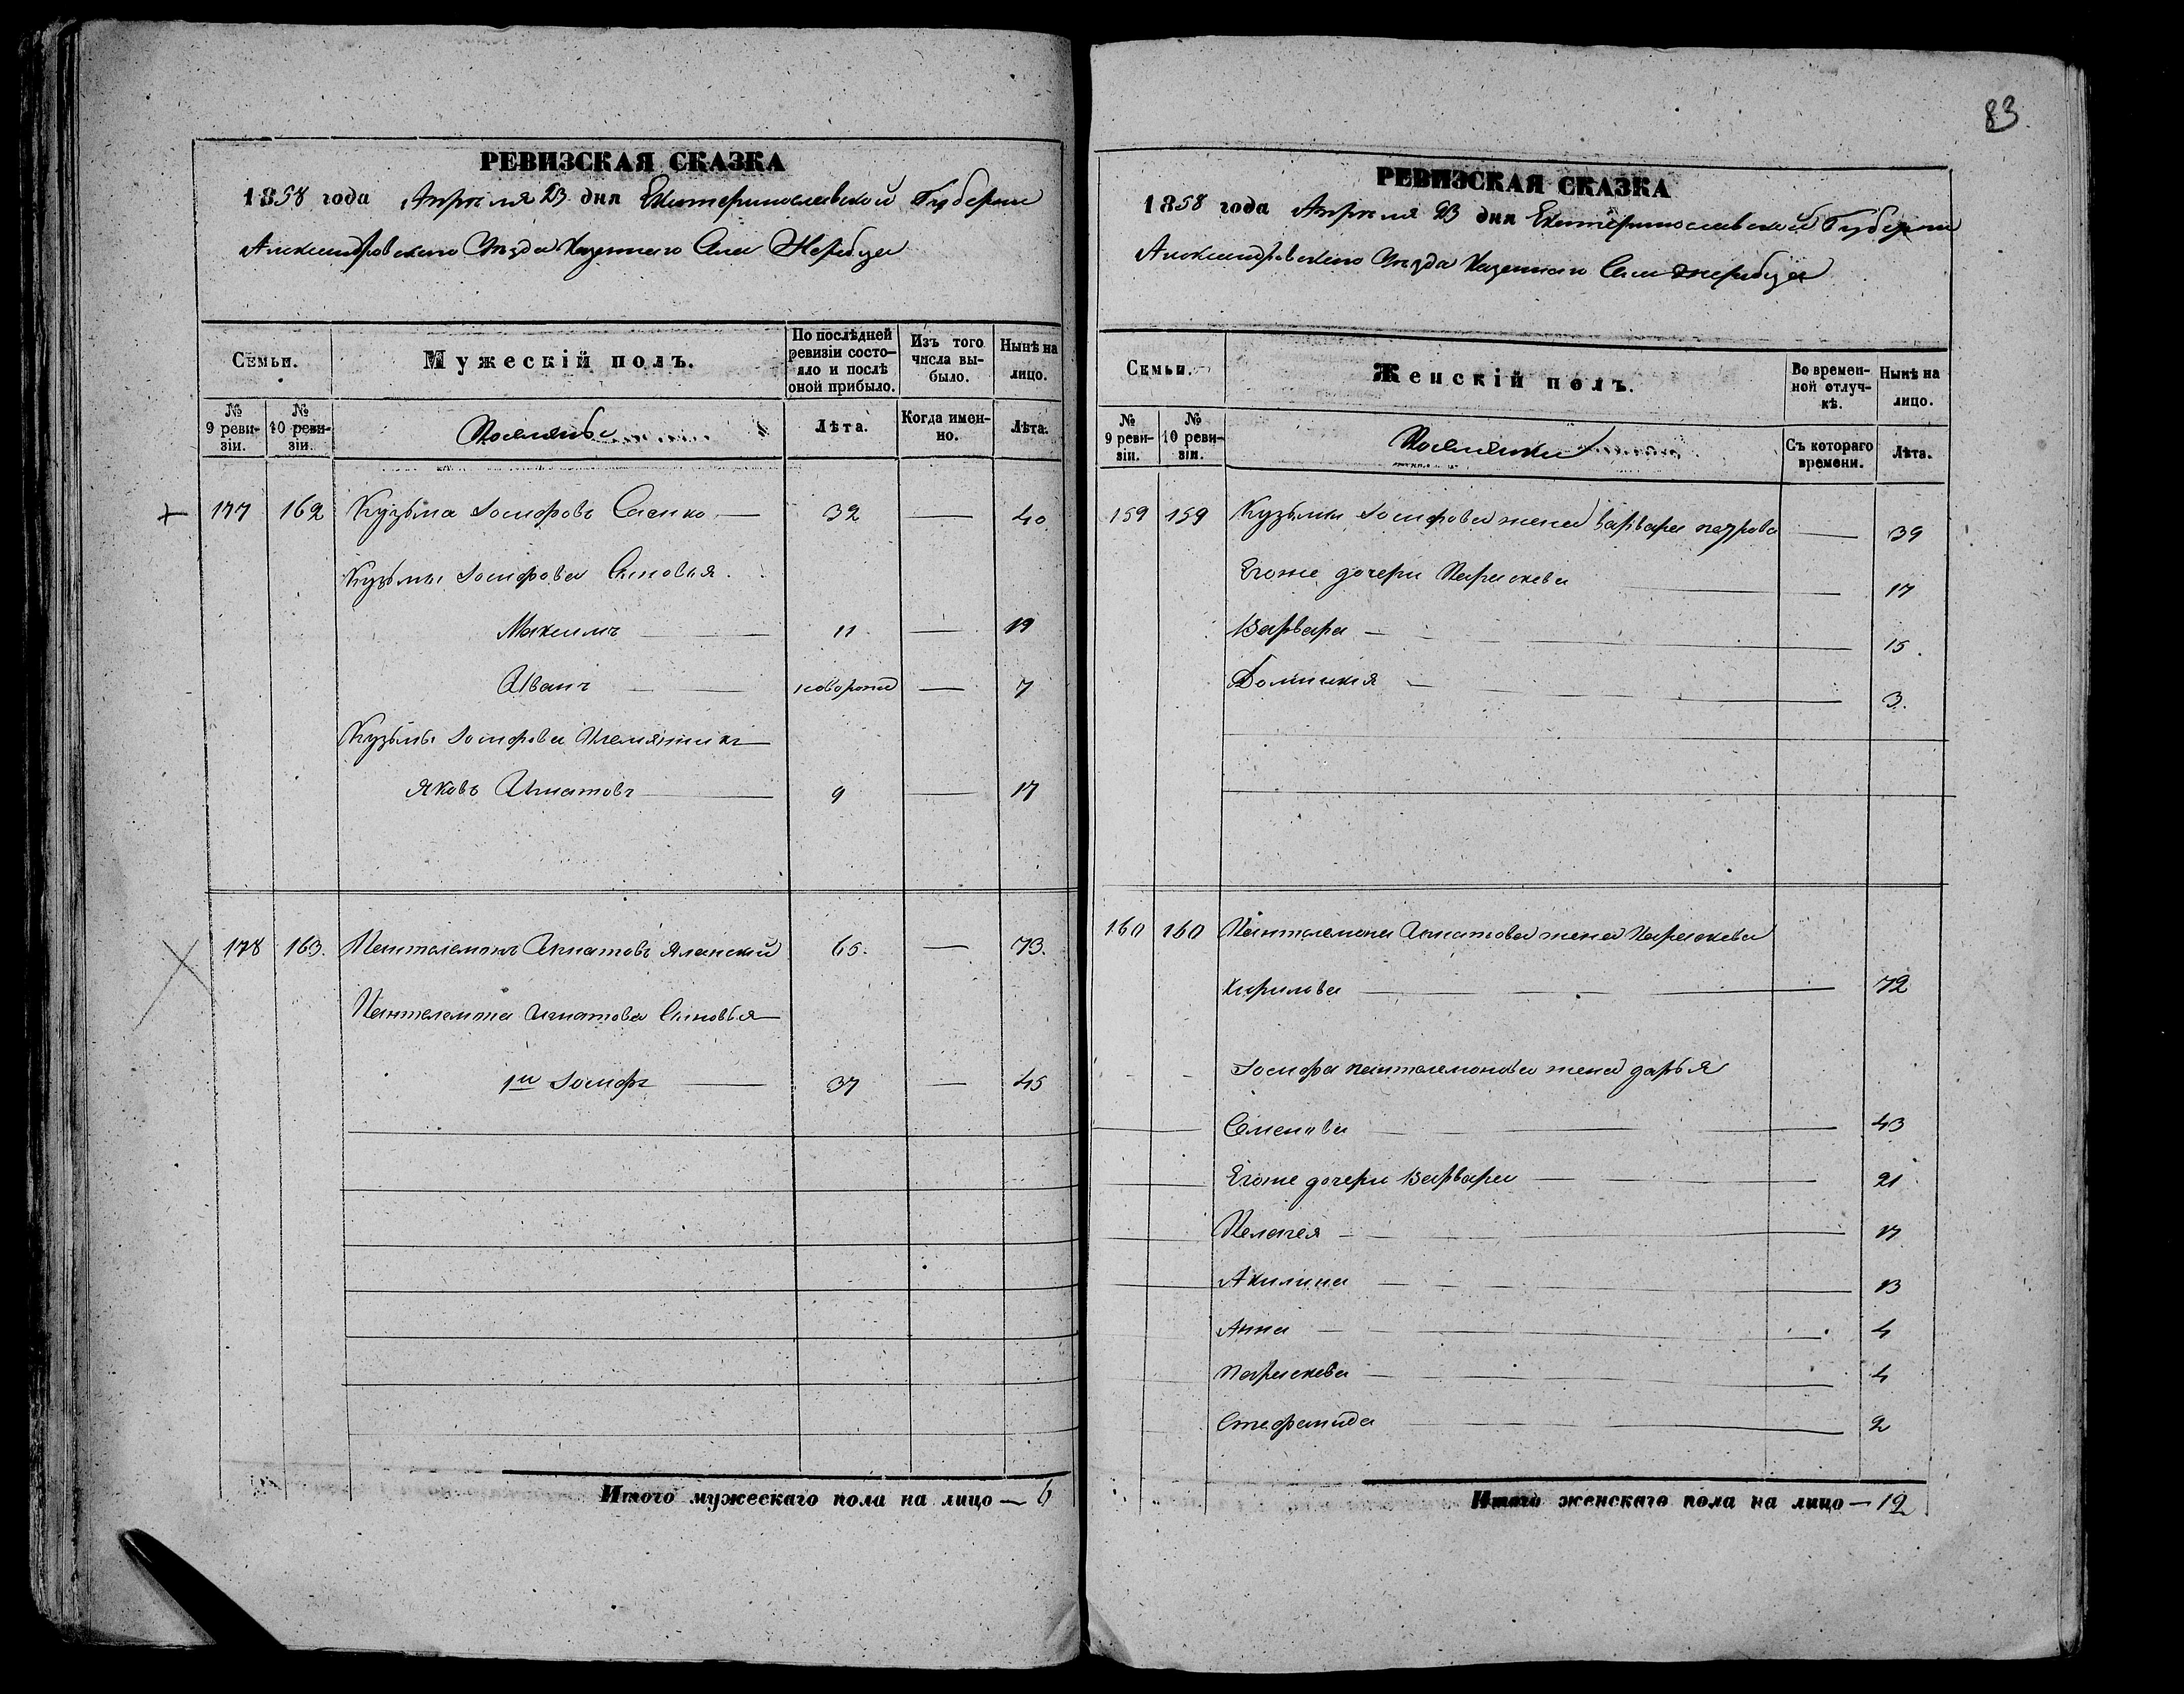 83
РЕВИЗСКАЯ СКАЗКА
1858 года Апреля 23 дня Екатеринославской Губернии
Александровского Уезда Казенного Села Жеребца
Семьи.
Мужескій полъ.
По послѣдней ревизіи состояло и послѣ оной прибыло.
Изъ того числа выбыло.
Нынѣ на лицо.
№ 9 ревизіи.
№ 10 ревизіи.
Поселяне
Лѣта.
Когда именно.
Лѣта.
177 162 Кузьма Іосифовъ Саенко — 32 — 40
Кузьмы Іосифова Сыновья
Максимъ — 11 — 19
Иванъ — новорожд — 7
Кузьмы Іосифова Племянникъ
Яковъ Игнатовъ — 9 — 17
178 163. Пантелемонъ Игнатовъ Яланский 65. — 73.
Пантелемона Игнатова Сыновья
1й Іосифъ — 37 — 45
Итого мужескаго пола на лицо — 6
РЕВИЗСКАЯ СКАЗКА
1858 года Апреля 23 дня Екатеринославской Губернии
Александровского Уезда Казенного Села Жеребца
Семьи.
Женскій полъ.
Во временной отлучкѣ.
Нынѣ на лицо.
№ 9 ревизіи.
№ 10 ревизіи.
Поселянки
Съ котораго времени.
Лѣта.
159 159 Кузьмы Іосифова жена Варвара петрова — 39
Егоже дочери Параскева — 17
Варвара — 15.
Домникия — 3.
160 160 Пантелемона Игнатова жена Параскева
Кирилова — 72
Іосифа пантелемонова жена дарья
Семенова — 43
Егоже дочери Варвара — 21
Пелагея — 17
Акилина — 13
Анна — 4
Параскева — 4
Стефанида — 2
Итого женскаго пола на лицо — 12